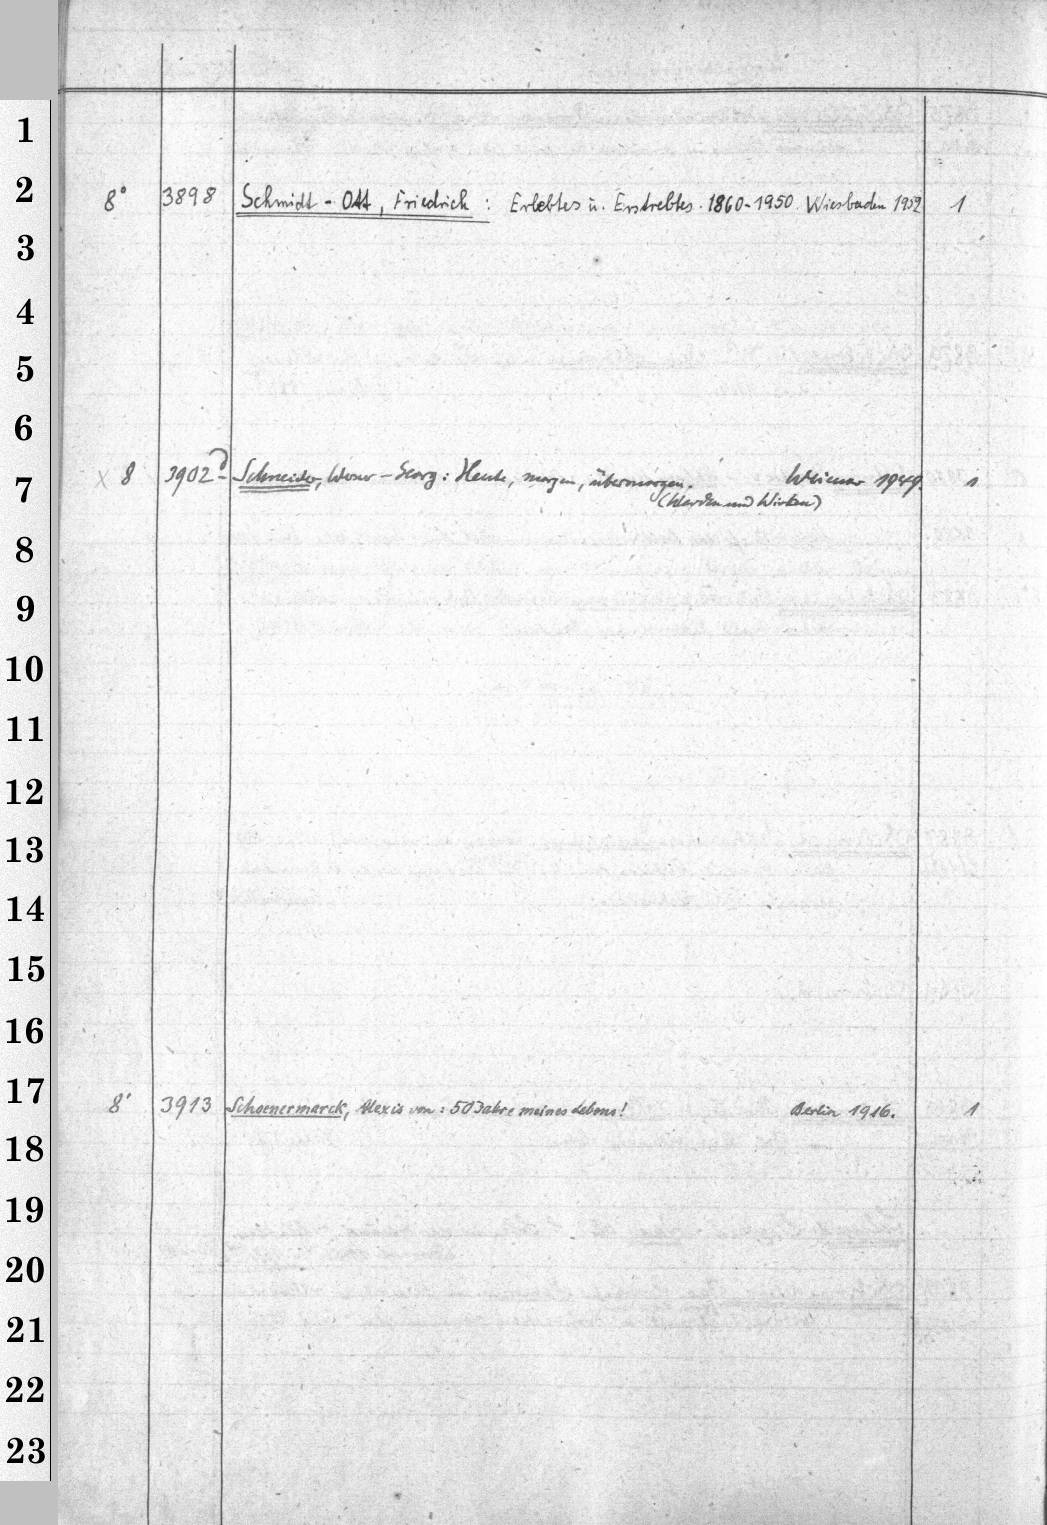 1
2
8° 3898 Schmidt-Ott, Friedrich: Erlebtes u. Erstrebtes. 1860-1950. Wiesbaden 1952 1
3
4
5
6
7
x 8 3902 Schneider, Werner-Georg: Heute, morgen, übermorgen. Weimar 1949. 1
(Werden und Wirken)
8
9
10
11
12
13
14
15
16
17
8' 3913 Schoenermarck, Alexis von: 50 Jahre meines Lebens! Berlin 1916. 1
18
19
20
21
22
23